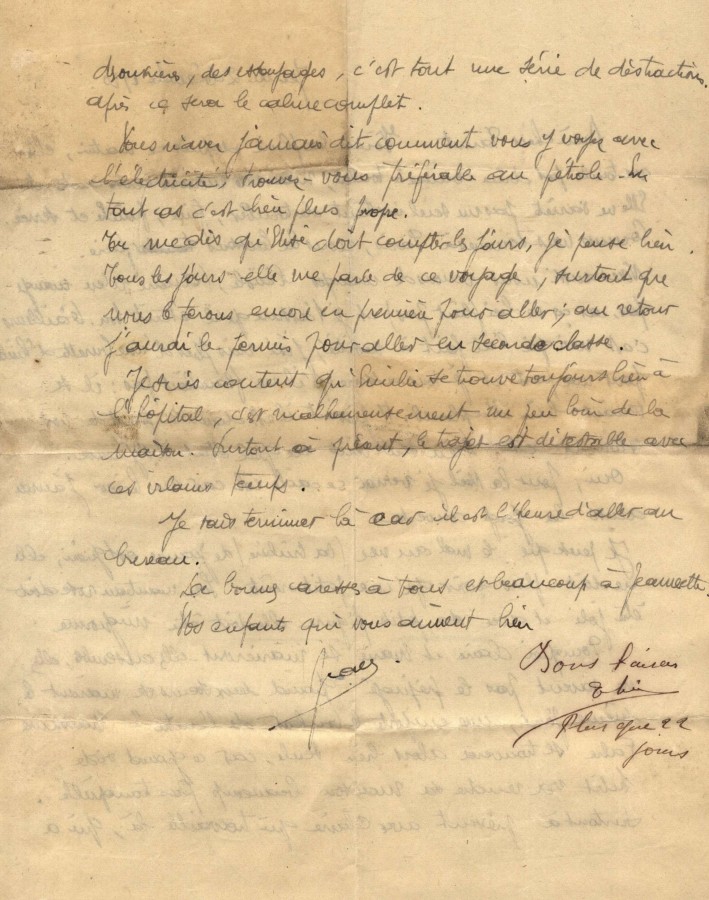 , des essayages, c'est tout une série de distractions.
après ça sera le calme complet.
Vous n'avez jamais dit comment vous y voyez avec
l'électricité, trouvez-vous préférable au pétrole. En
tout cas c'est bien plus propre.
Tu me dis qu'Elisé doit compter les jours, je pense bien.
Tous les jours elle me parle de ce voyage, surtout que
nous ferons encore en première pour aller; au retour
j'aurai le permis pour aller en seconde classe.
Je suis content qu'Emilie se trouve toujours bien à
l'hôpital, c'est malheureusement un peu loin de la
maison. Surtout à présent, le trajet est détestable avec
ces vilains temps.
Je vais terminer là car il est l'heure d'aller au
bureau.
De bonnes caresses à tous et beaucoup à Jeannette.
Vos enfants qui vous aiment bien
Bons baisers
Plus que 22
jours